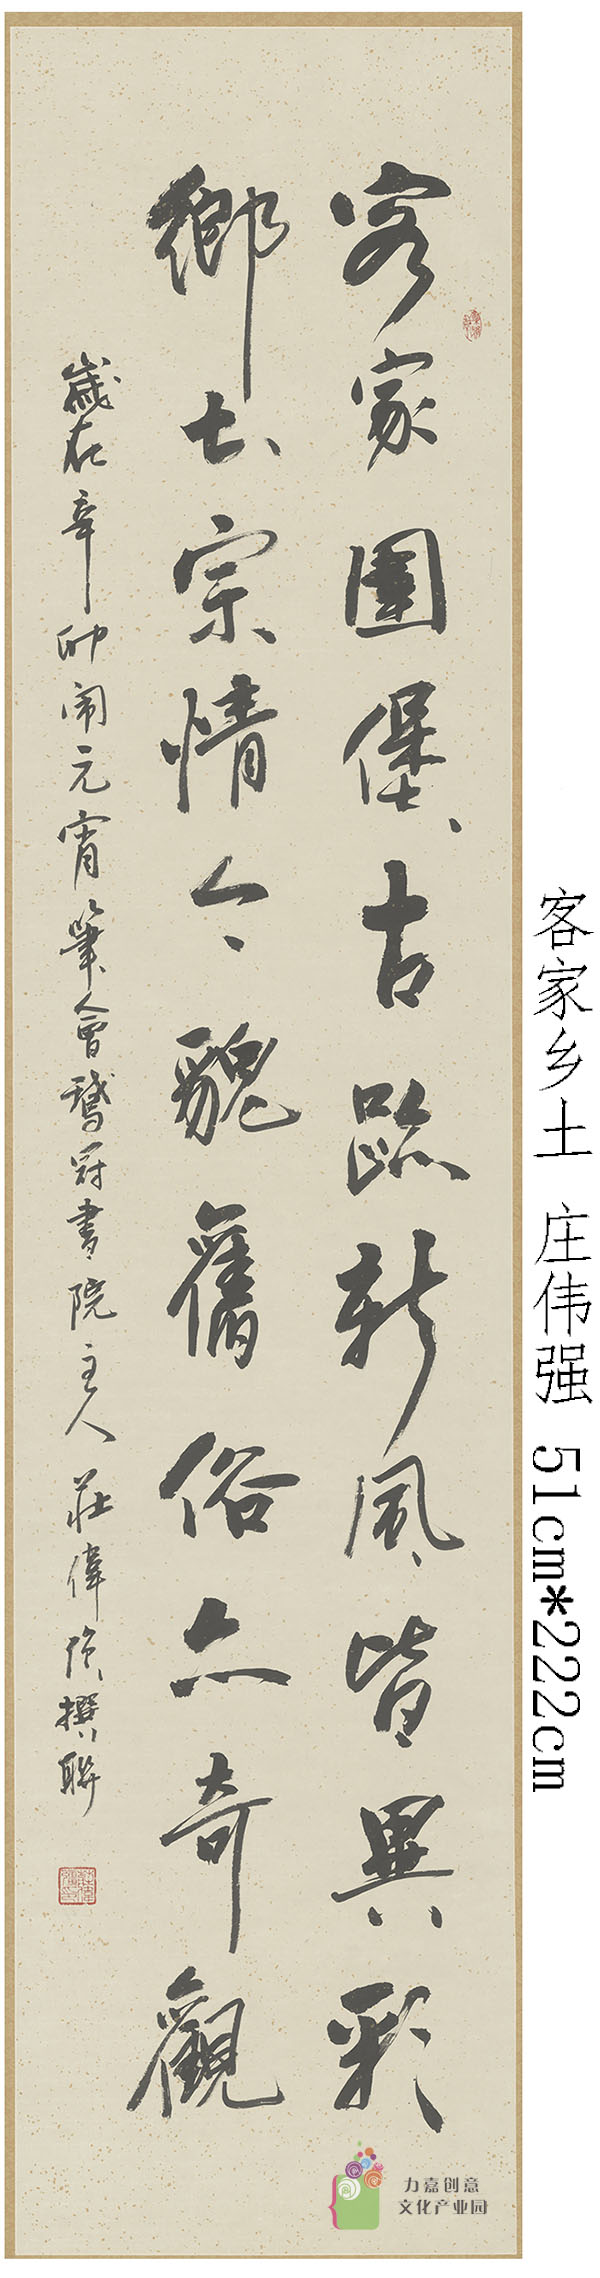 客家圍堡古跡新風皆異彩
鄉土宗情今貌舊俗亦奇觀
歲在辛卯闹元宵筆會鵝冠書院主人莊偉強撰聯
客家乡土 庄伟强 51cm*222cm
力嘉创意
文化产业园